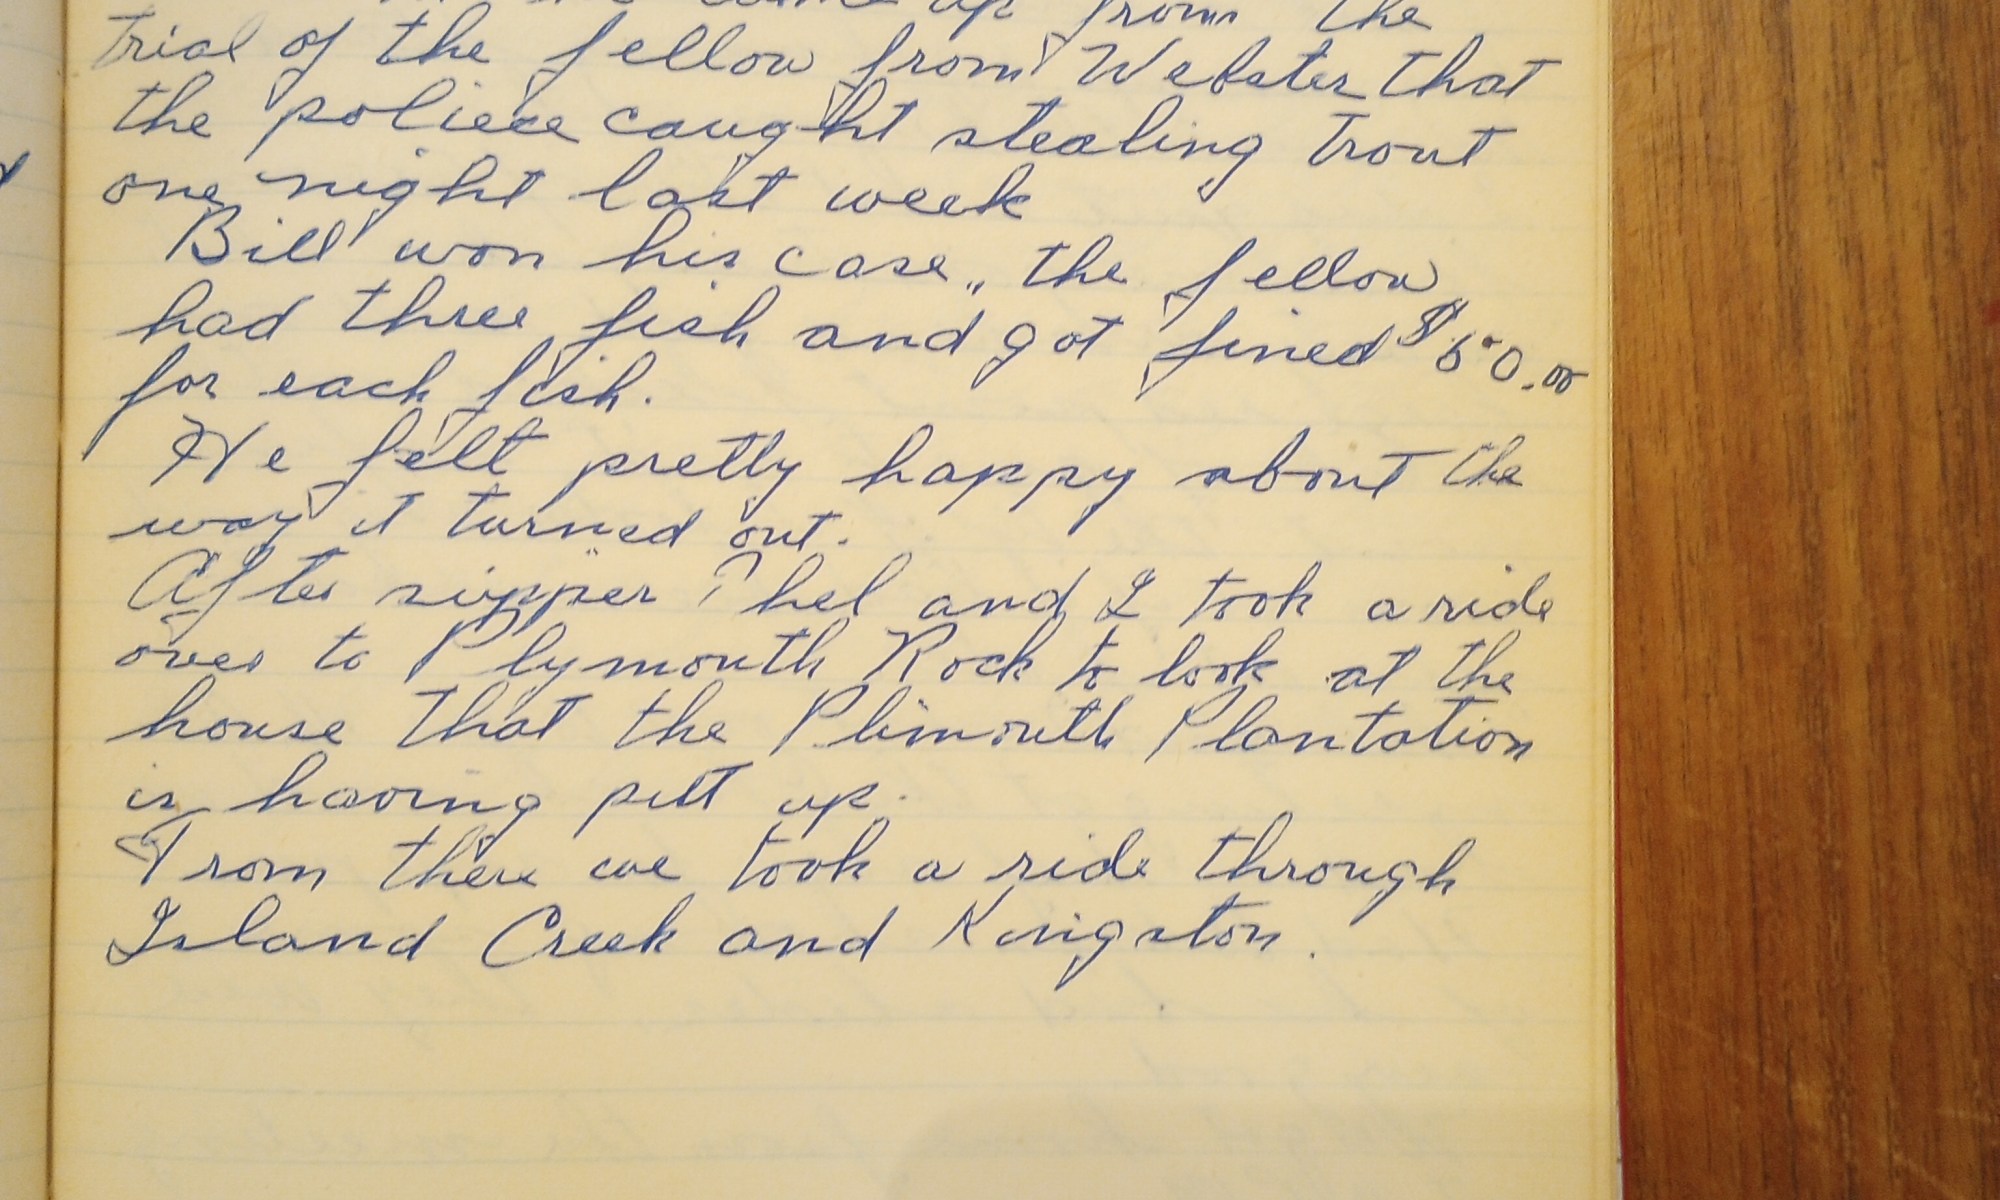 came up from the
trial of the fellow from Webster that
the poliece caught stealing trout
one night last week
Bill won his case,, the fellow
had three fish and got fined $50.00
for each fish.
He felt pretty happy about the
way it turned out.
After supper Thel and I took a ride
over to Plymouth Rock to look at the
house that the Plimouth Plantation
is having putt up.
From there we took a ride through
Island Creek and Kingston.